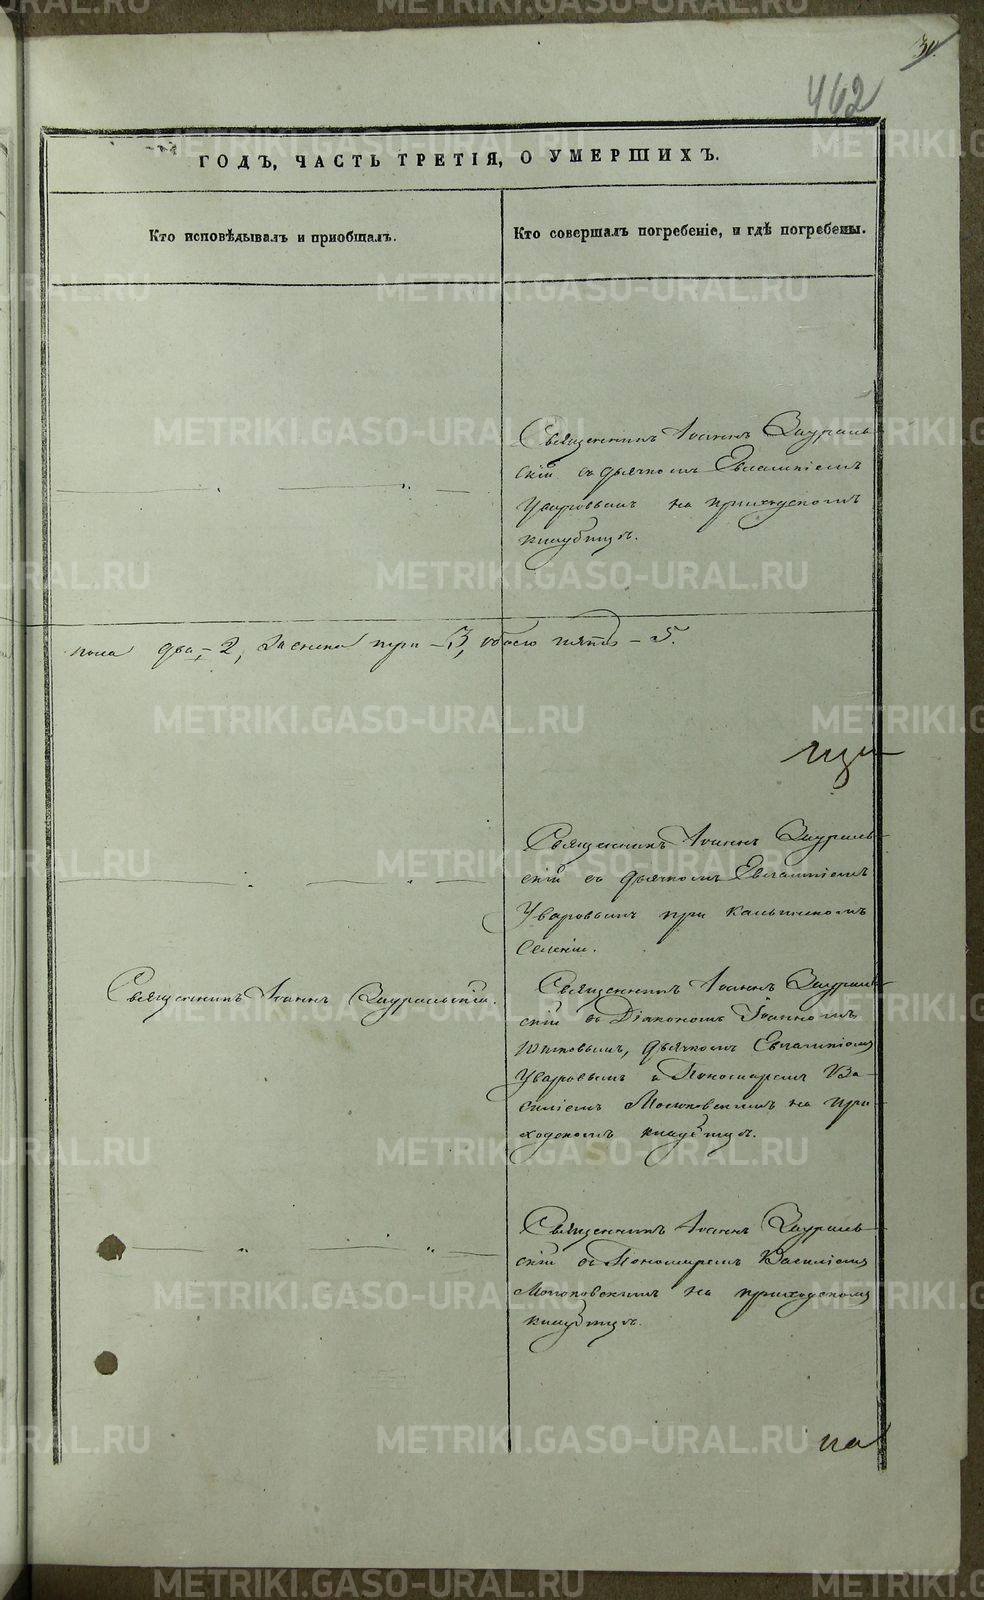 30.
462
ГОДЪ, ЧАСТЬ ТРЕТІЯ, О УМЕРШИХЪ.
Кто исповѣдывалъ и пріобщалъ.
Кто совершалъ погребеніе, и гдѣ погребены.
Священникъ Іоаннъ Заураль-
скій съ дьячкомъ Евлампіемъ
Уваровымъ на приходскомъ
кладбищѣ.
пола два – 2, женска три – 3, обоего пять – 5.
Священникъ Іоаннъ Заураль-
скій съ дьячкомъ Евлампіемъ
Уваровымъ при
селеніи.
Священникъ Іоаннъ Зауральскій.
Священникъ Іоаннъ Заураль-
скій съ Діакономъ Іоанномъ
дьячкомъ Евлампіемъ
Уваровымъ и Пономаремъ Ва-
силіемъ на при-
ходскомъ кладбищѣ.
Священникъ Іоаннъ Заураль-
скій съ Пономаремъ Василіемъ
на приходскомъ
кладбищѣ.
на
METRIKI.GASO-URAL.RU